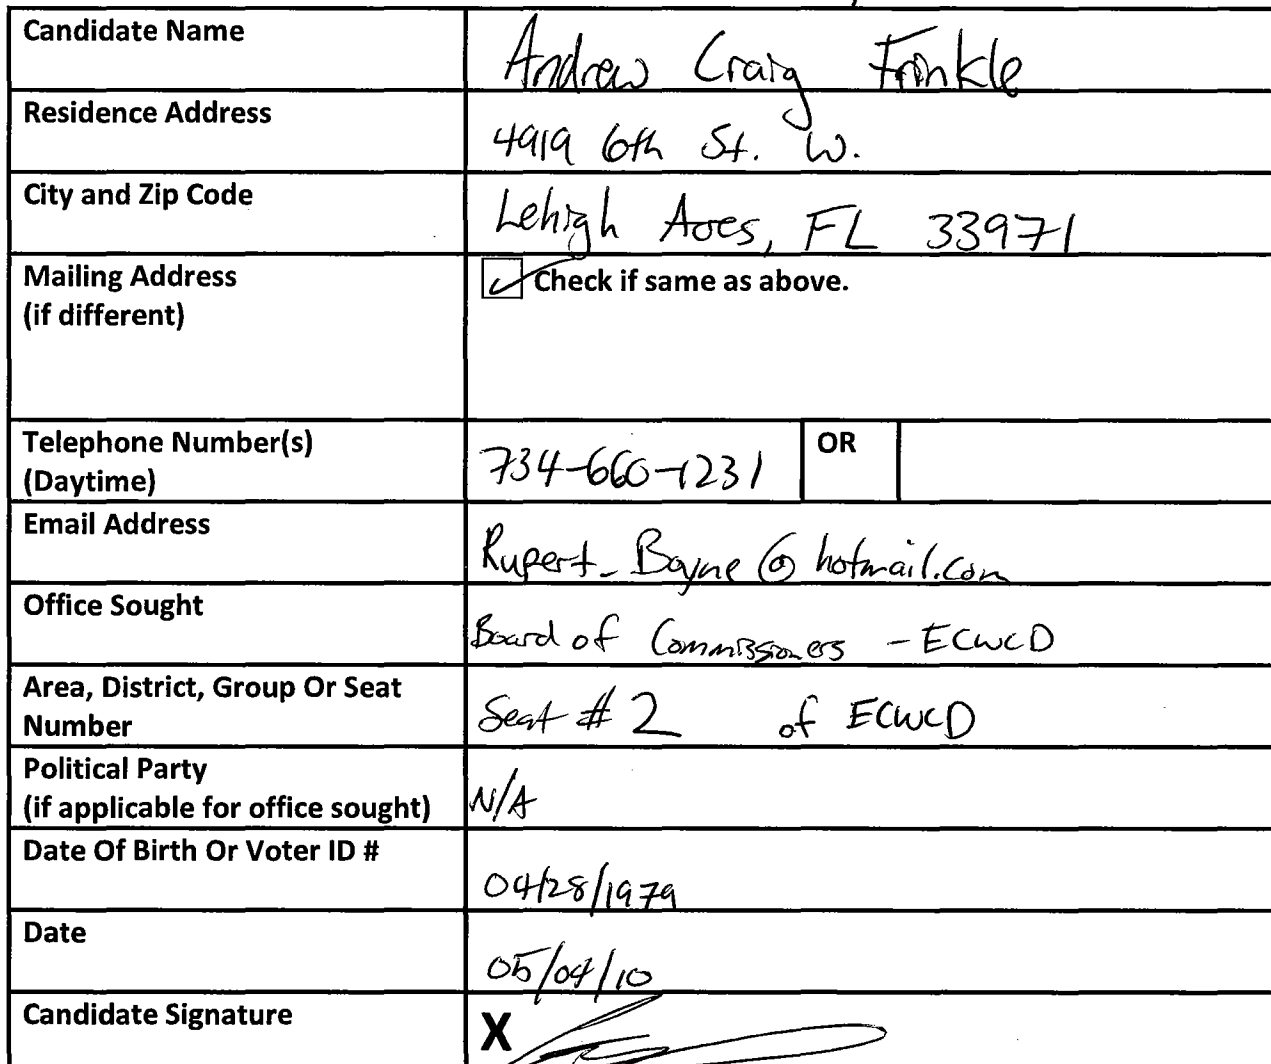 Candidate Name
Andrew Craig Frinkle
Residence Address
4919 6th St. W.
City and Zip Code
Lehigh Acres, FL 33971
Mailing Address
(if different)
Check if same as above.
Telephone Number(s)
(Daytime)
734-660-1231
OR
Email Address
Rupert_Boyne@hotmail.com
Office Sought
Board of Commissioners - ECWCD
Area, District, Group Or Seat
Number
Seat # 2 of ECWCD
Political Party
(if applicable for office sought)
N/A
Date Of Birth Or Voter ID #
04/28/1979
Date
05/04/10
Candidate Signature
X